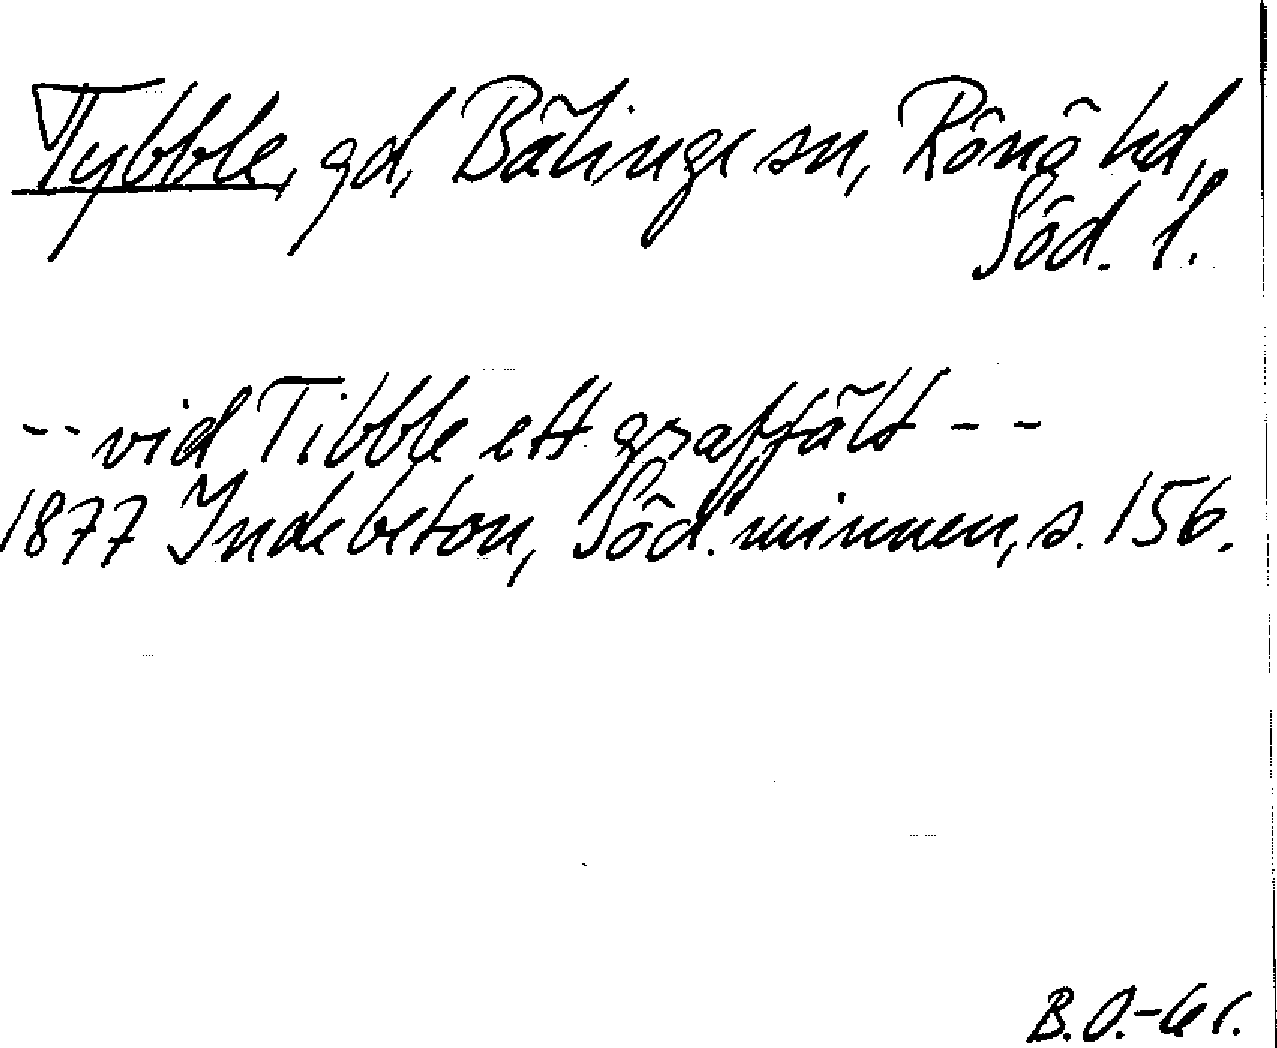 Tybble, gd, Bälinge sn, Rönö hd,
Söd. l.
-- vid Tibble ett graffält --
1877 Indebetou, Söd. minnen, s. 156.
B.O.-Gr.